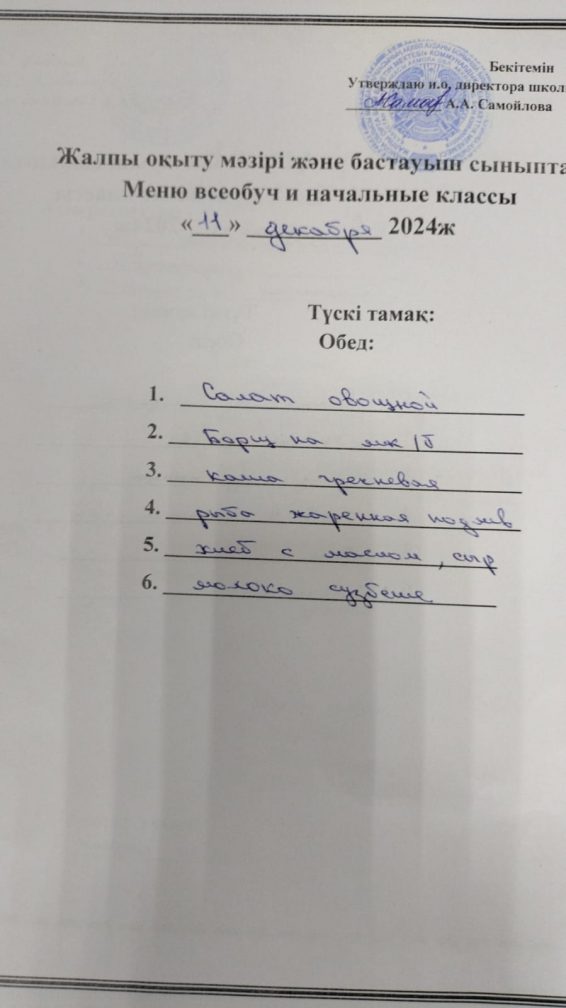 Бекітемін
Утверждаю и.о, директора школ
А.А. Самойлова
Жалпы оқыту мәзірі және бастауыш сыныпта
Меню всеобуч и начальные классы
«11» декабря 2024ж
Түскі тамақ:
Обед:
1. Салат овощной
2. Борщ на мк/б
3. каша гречневая
4. рыба жаренная подлив
5. хлеб с маслом, сыр
6. молоко сузбеше